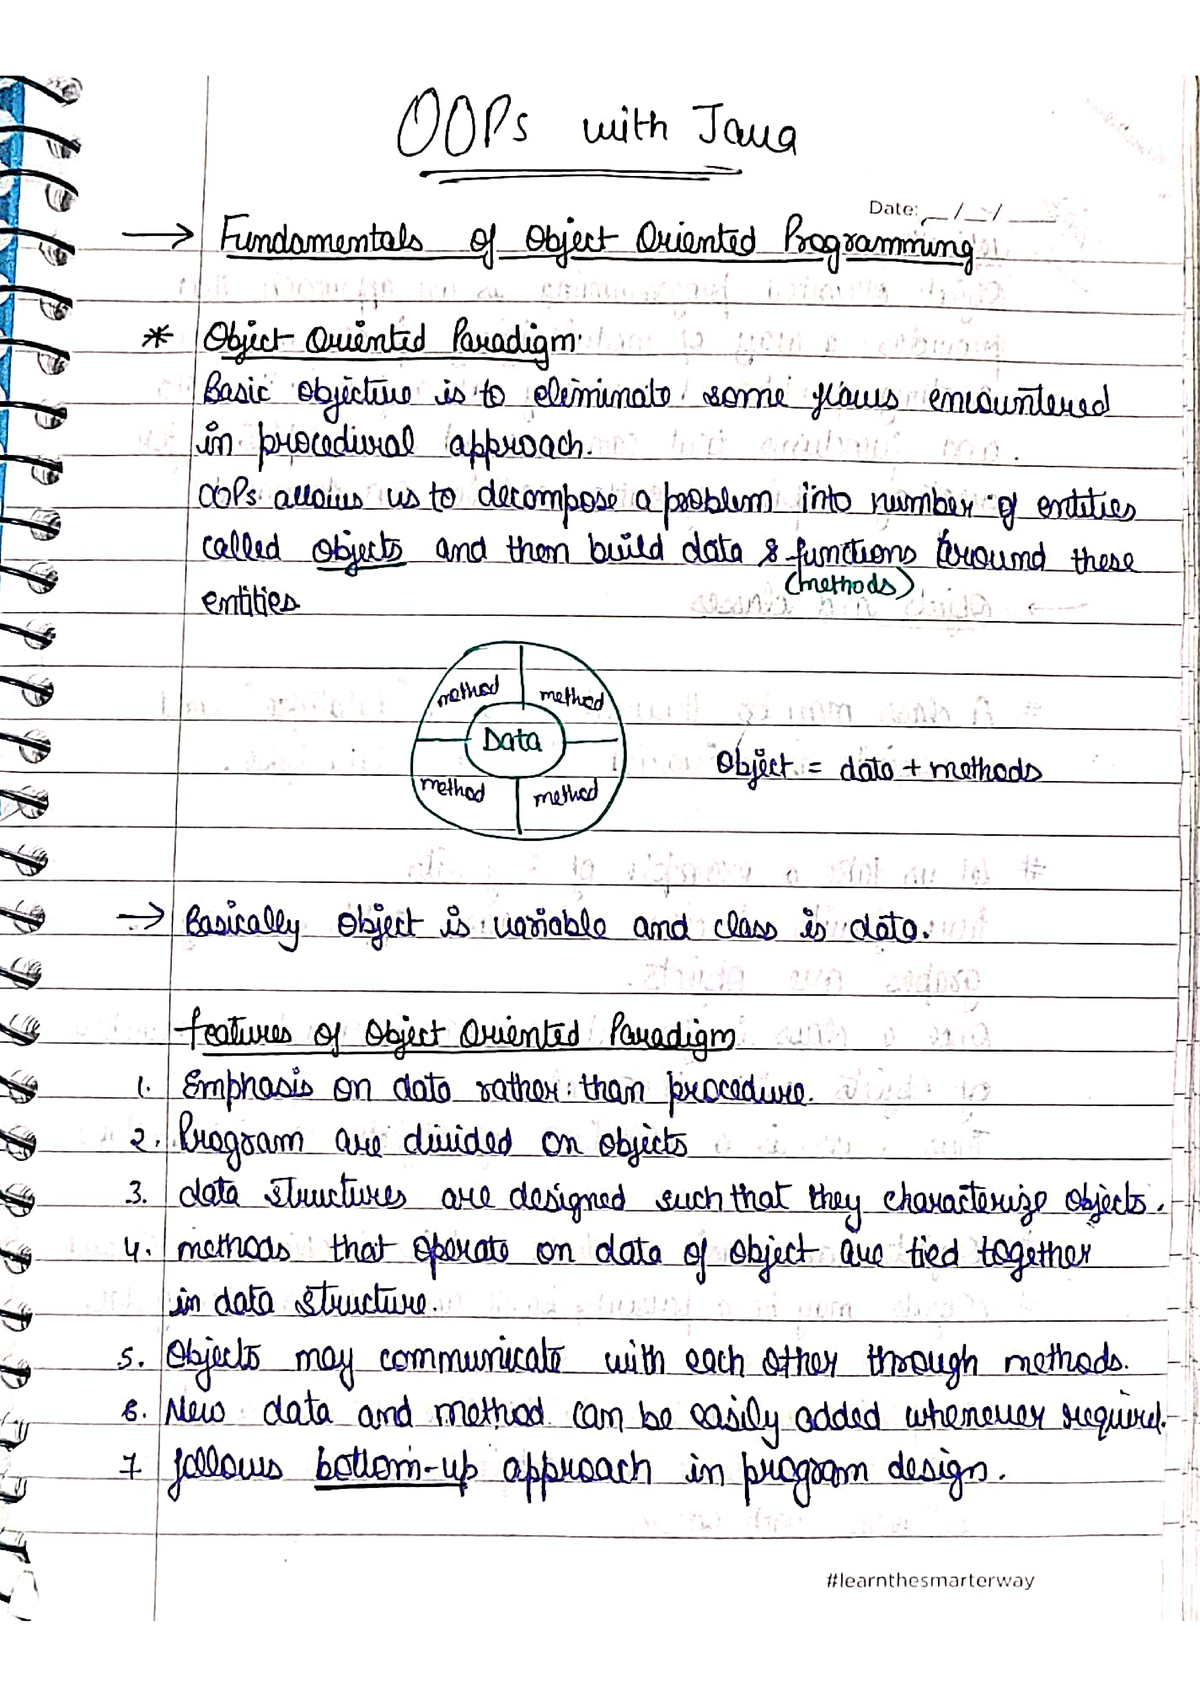 OOPs with Java
Date: __/__/____
→ Fundamentals of Object Oriented Programming
* Object Oriented Paradigm.
Basic objective is to eliminate some flaws encountered
in procedural approach.
OOPs allows us to decompose a problem into number of entities
called objects and then build data & functions around these
(methods)
entities
method method
Data
method method
Object = data + methods
→ Basically object is variable and class is data.
features of Object Oriented Paradigm
1. Emphasis on data rather than procedure.
2. Program are divided on objects
3. data structures are designed such that they characterize objects.
4. methods that operate on data of object are tied together
in data structure.
5. Objects may communicate with each other through methods.
6. New data and method can be easily added whenever required.
7. follows bottom-up approach in program design.
#learnthesmarterway